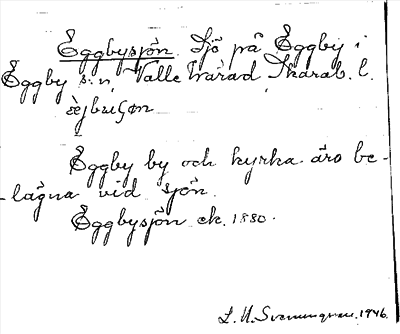 Eggbysjön. Sjö på Eggby i
Eggby s:n, Valle härad, Skarab. l.
Eggby by och kyrka äro be-
-lägna vid sjön.
Eggbysjön ek. 1880.
1946.